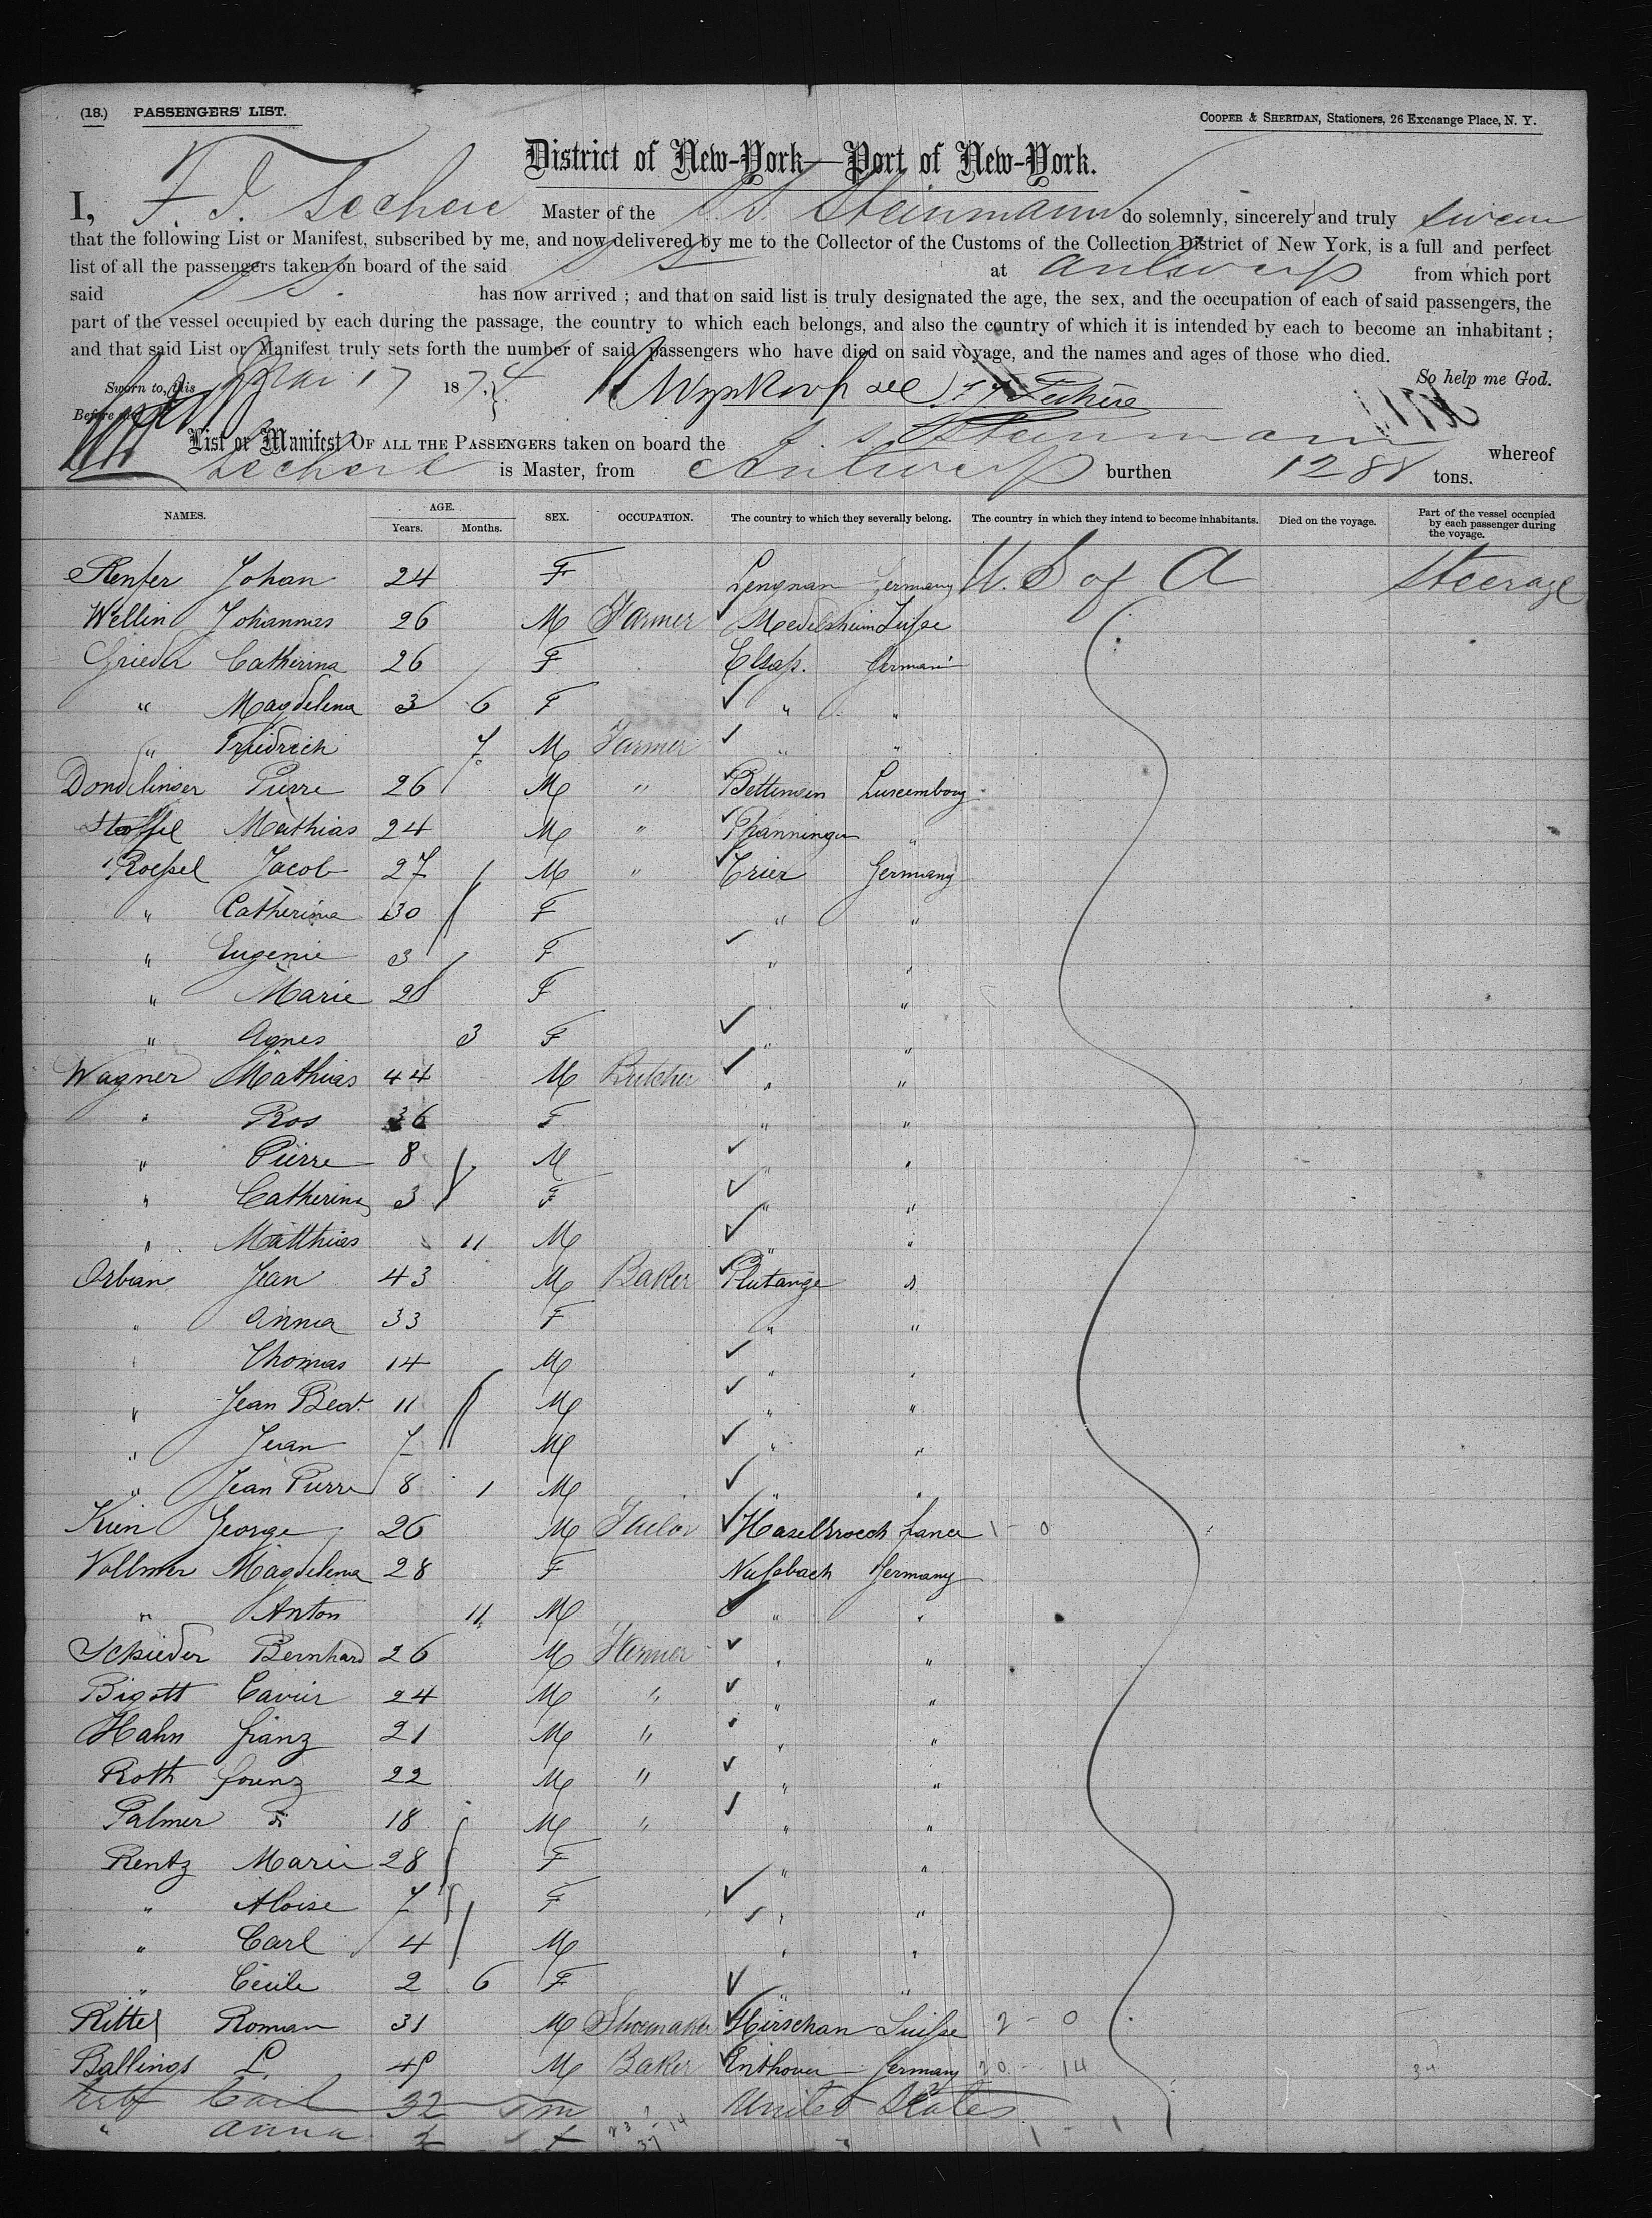 (18.) PASSENGERS' LIST.
COOPER & SHERIDAN, Stationers, 26 Exchange Place, N. Y.
District of New-York—Port of New-York.
I, F. J. Lechere Master of the S. S. Steinmann do solemnly, sincerely and truly swear
that the following List or Manifest, subscribed by me, and now delivered by me to the Collector of the Customs of the Collection District of New York, is a full and perfect
list of all the passengers taken on board of the said S S at Antwerp from which port
said S S. has now arrived ; and that on said list is truly designated the age, the sex, and the occupation of each of said passengers, the
part of the vessel occupied by each during the passage, the country to which each belongs, and also the country of which it is intended by each to become an inhabitant ;
and that said List or Manifest truly sets forth the number of said passengers who have died on said voyage, and the names and ages of those who died.
So help me God.
Sworn to, this 17 1874
Before me
List or Manifest OF ALL THE PASSENGERS taken on board the S. S. Steinmann whereof
Lechere is Master, from Antwerp burthen 1288 tons.
NAMES. AGE. Years. Months. SEX. OCCUPATION. The country to which they severally belong. The country in which they intend to become inhabitants. Died on the voyage. Part of the vessel occupied by each passenger during the voyage.
Renfer Johan 24 F Lengnan Germany U. S of A Steerage
Wellin Johannes 26 M Farmer Medelsheim Suisse
Grieder Catherina 26 F Elsass. Germani
" Magdelena 3 6 F " "
" Friedrich 7 M Farmer " "
Dondelinger Pierre 26 M " Bettingen Luxembourg
Stoffel Mathias 24 M " "
Roessel Jacob 27 M " Trier Germany
" Catherina 30 F " "
" Eugenie 3 F " "
" Marie 28 F " "
" Agnes 3 F " "
Wagner Mathias 44 M Butcher " "
" Ros 36 F " "
" Pierre 8 M " "
" Catherina 3 F " "
" Matthias 11 M " "
Orban Jean 43 M Baker Plutange "
" Anna 33 F " "
" Thomas 14 M " "
" Jean Beat. 11 M " "
" Jean 7 M " "
" Jean Pierre 8 1 M " "
Kien George 26 M Tailor Haselbroech france 1 - 0
Vollmer Magdelena 28 F Nussbach Germany
" Anton 11 M " "
Schieder Bernhard 26 M Farmer " "
Bigott Cavier 24 M " " "
Hahn franz 21 M " " "
Roth 22 M " " "
Palmer 18 M " " "
Rentz Marie 28 F " "
" Aloise 7 F " "
" Carl 4 M " "
" Cecile 2 6 F " "
Ritter Roman 31 M Shoemaker Hirschan Suisse 2 - 0
Ballings L. M Baker Enthoven Germany 20 - 14 34
Carl 32 m United States
" Anna f 1 - 1